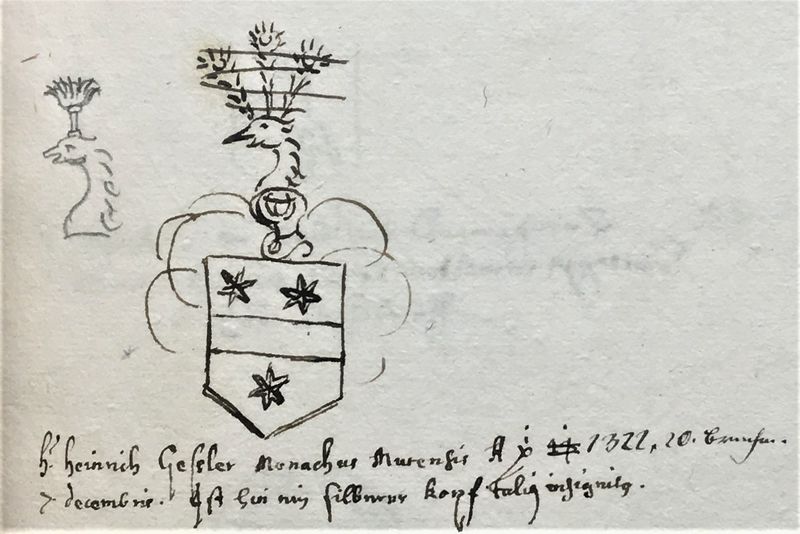 hr heinrich Gessler Monachus Murensis A 1322, 20.
7 decembris. Ist hie ein silbrner kopf talis insignitus.